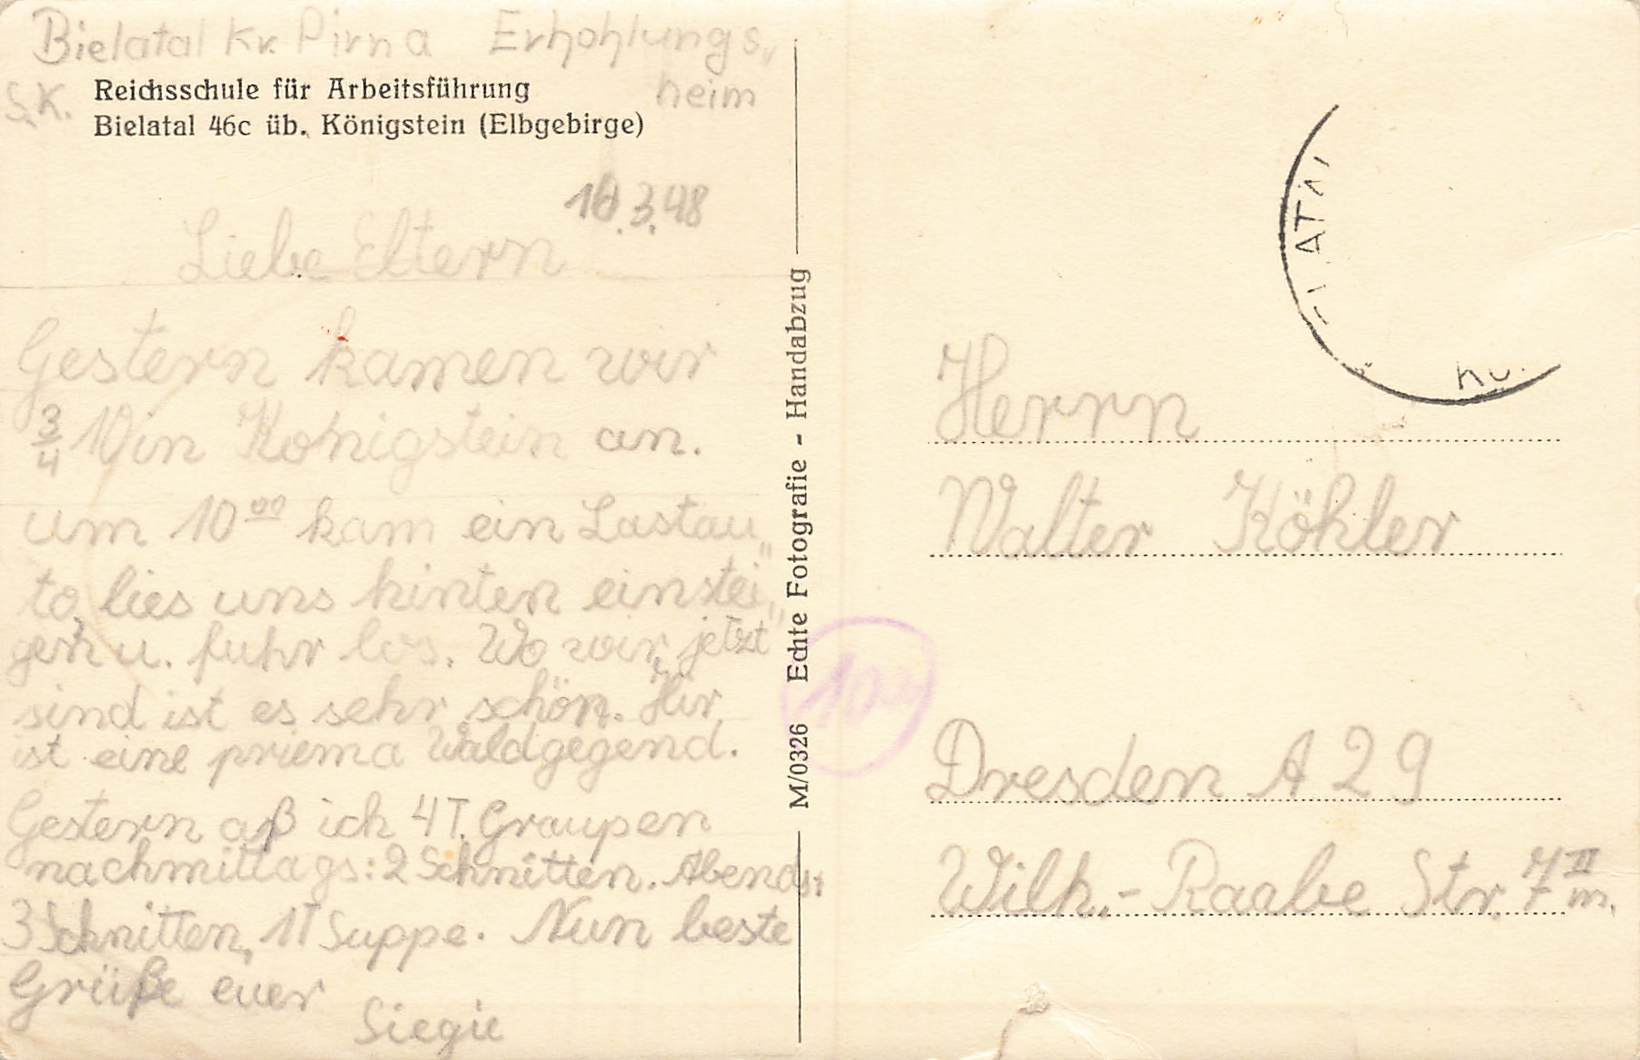 Bielatal Kr. Pirna Erhohlungs„
heim
S.K.
Reichsschule für Arbeitsführung
Bielatal 46c üb. Königstein (Elbgebirge)
10.3.48
Liebe Eltern
Gestern kamen wir
3/4 10 in Konigstein an.
um 10 00 kam ein Lastau„
to, lies uns hinten einstei„
gen u. fuhr los. Wo wir jetzt
sind ist es sehr schön. Hir
ist eine priema Waldgegend.
Gestern aß ich 4T. Graupen
nachmittags: 2 Schnitten. Abends:
3 Schnitten, 1T Suppe. Nun beste
Grüße euer
Siegie
M/0326 Echte Fotografie - Handabzug
10a
Herrn
Walter Köhler
Dresden A 29
Wilh.- Raabe Str. 7 II m.